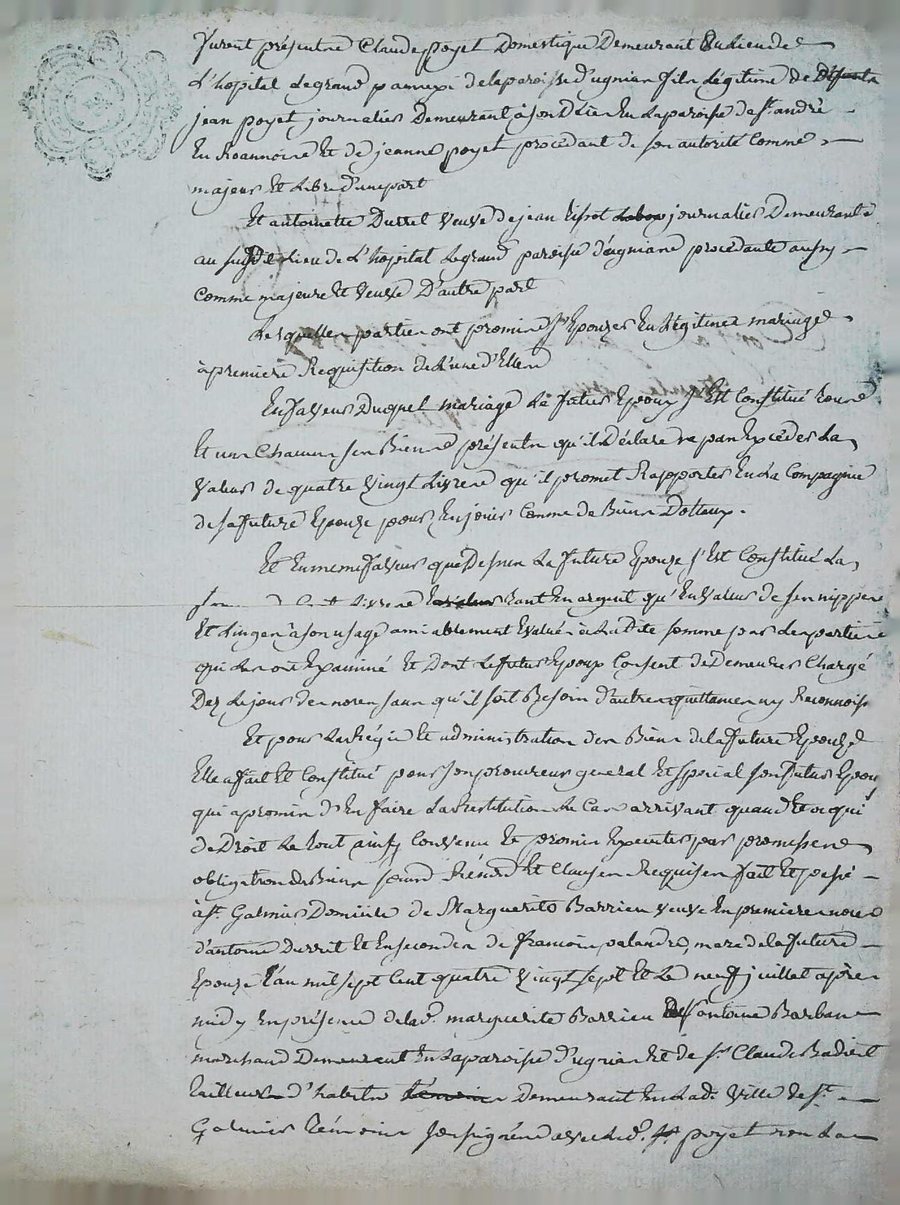 furent présents Claude poyet Domestique Demeurant Au lieu de
L'hopital Legrand paroisse d'ugnian fils Légitime de Défunt
jean poyet journalier Demeurant à son Décès En La paroisse de st. andré
En Roannoise Et de jeanne poyet procédant de son autorité Comme
majeur Et Libre D'une part
Et antoinette Durret veuve de jean journalier Demeurante
au susdit Lieu de L'hopital Legrand paroisse d'ugnian procedante aussy
Comme majeure Et veuve D'autre part
Lesquelles parties ont promis s'Epouser En Légitime mariage
à première Requisition de L'une d'Elles
En faveur Duquel mariage Le futur Epoux s'Est Constitué tous
Et un Chacun ses Biens présents qu'il déclare ne pas Excéder La
Valeur de quatre Vingt Livres qu'il promet Rapporter En La Compagnie
de sa future Epouze pour En jouir Comme de Biens Dotaux.
Et En meme faveur que Dessus La future Epouze s'Est Constitué La
Livres tant En argent qu'En Valeur de ses nippes
Et Linges à son usage amiablement Evalués à La Dite somme par Les parties
qui Les ont Examiné Et Dont Le futur Epoux Consent de Demeurer Chargé
Dez Le jour des noces sans qu'il soit Besoin d'autres quittances ny Reconnoiss
Et pour La Régie Et administration des Biens de La future Epouze
Elle a fait Et Constitué pour son procureur general Et special son futur Epoux
qui a promis d'En faire La Restitution Le Cas arrivant quand Et a qui
de Droit Le tout ainsy Convenu Et promis Executer par promesses
obligation de Biens Et Clauses Requises fait Et passé
à st. Galmier Domicile de Marguerite Barrieu veuve En premieres noces
d'antoine Durret Et En secondes de francois palandre, mere de La future
Epouze L'an mil sept Cent quatre Vingt sept Et Le neuf juillet après
midy En présence de Lad. marguerite Barrieu De s. antoine Barban
marchand Demeurant En La paroisse d'ugnian Et de sr. Claude Badiel
tailleur d'habits Demeurant En Lad. Ville de st.
Galmier témoins soussignés avec Led. poyet non La